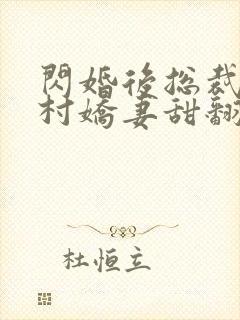 閃婚後総裁
村嬌妻甜翻
杜恒立